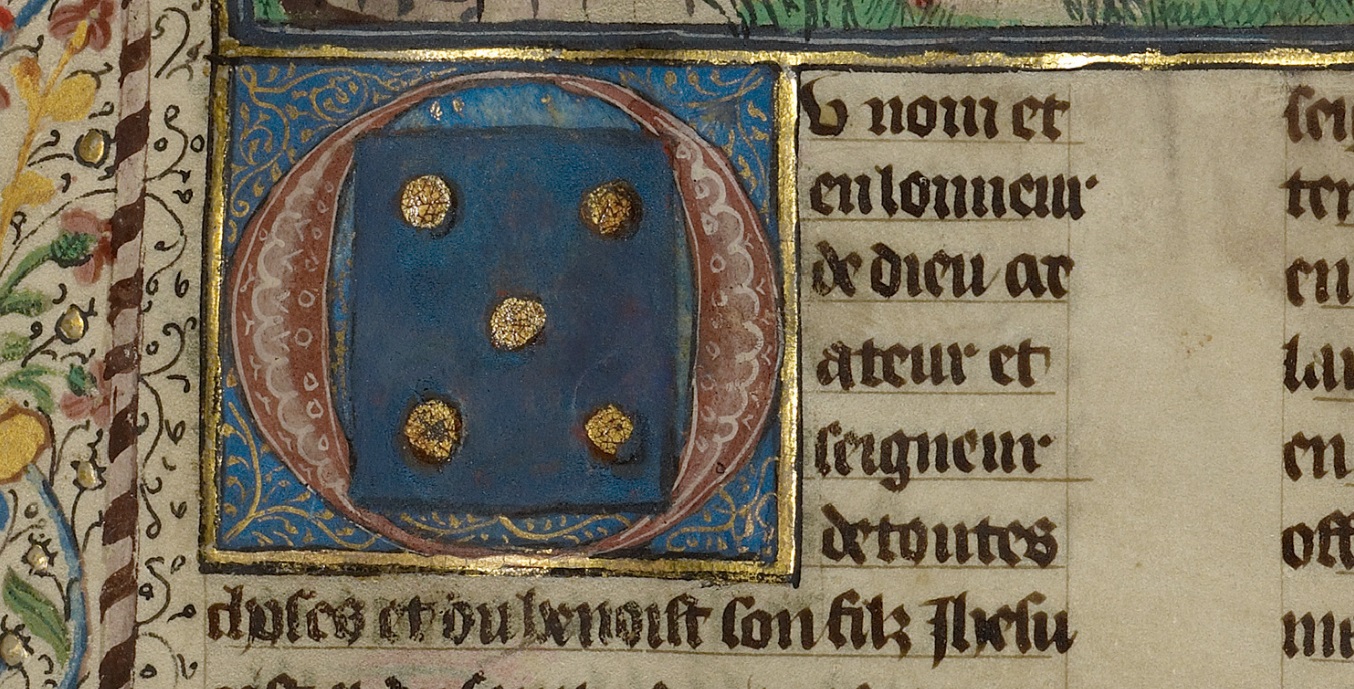 Ou nom et
en lonneur
de dieu cre
ateur et
seigneur
de toutes
choses et ou benoist son filz Jhesu